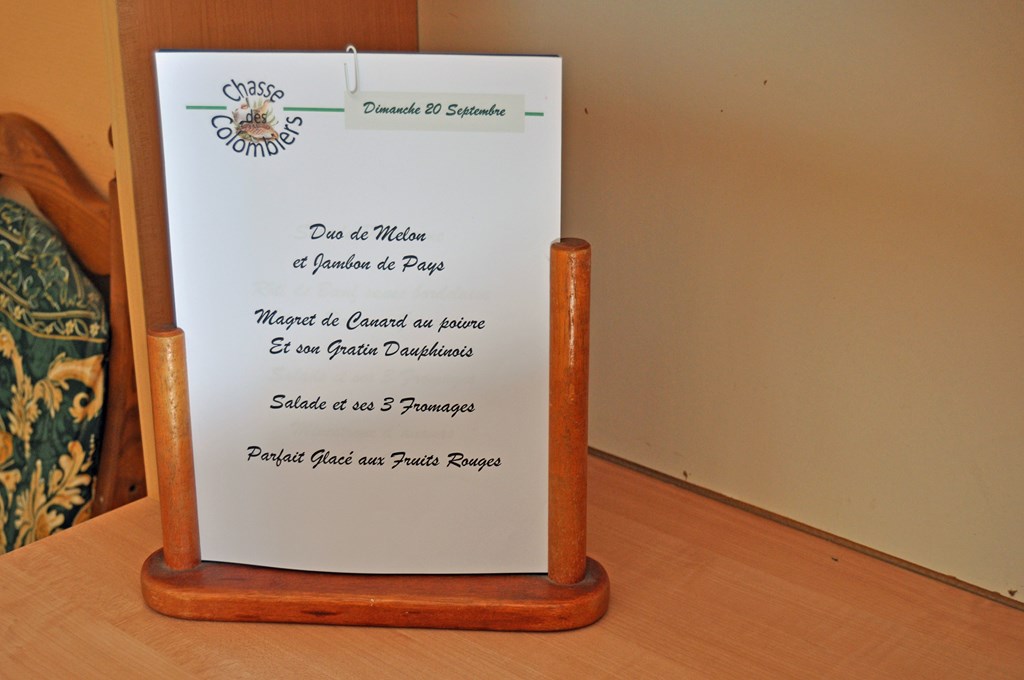 Chasse
des
Colombiers
Dimanche 20 Septembre
Duo de Melon
et Jambon de Pays
Magret de Canard au poivre
Et son Gratin Dauphinois
Salade et ses 3 Fromages
Parfait Glacé aux Fruits Rouges